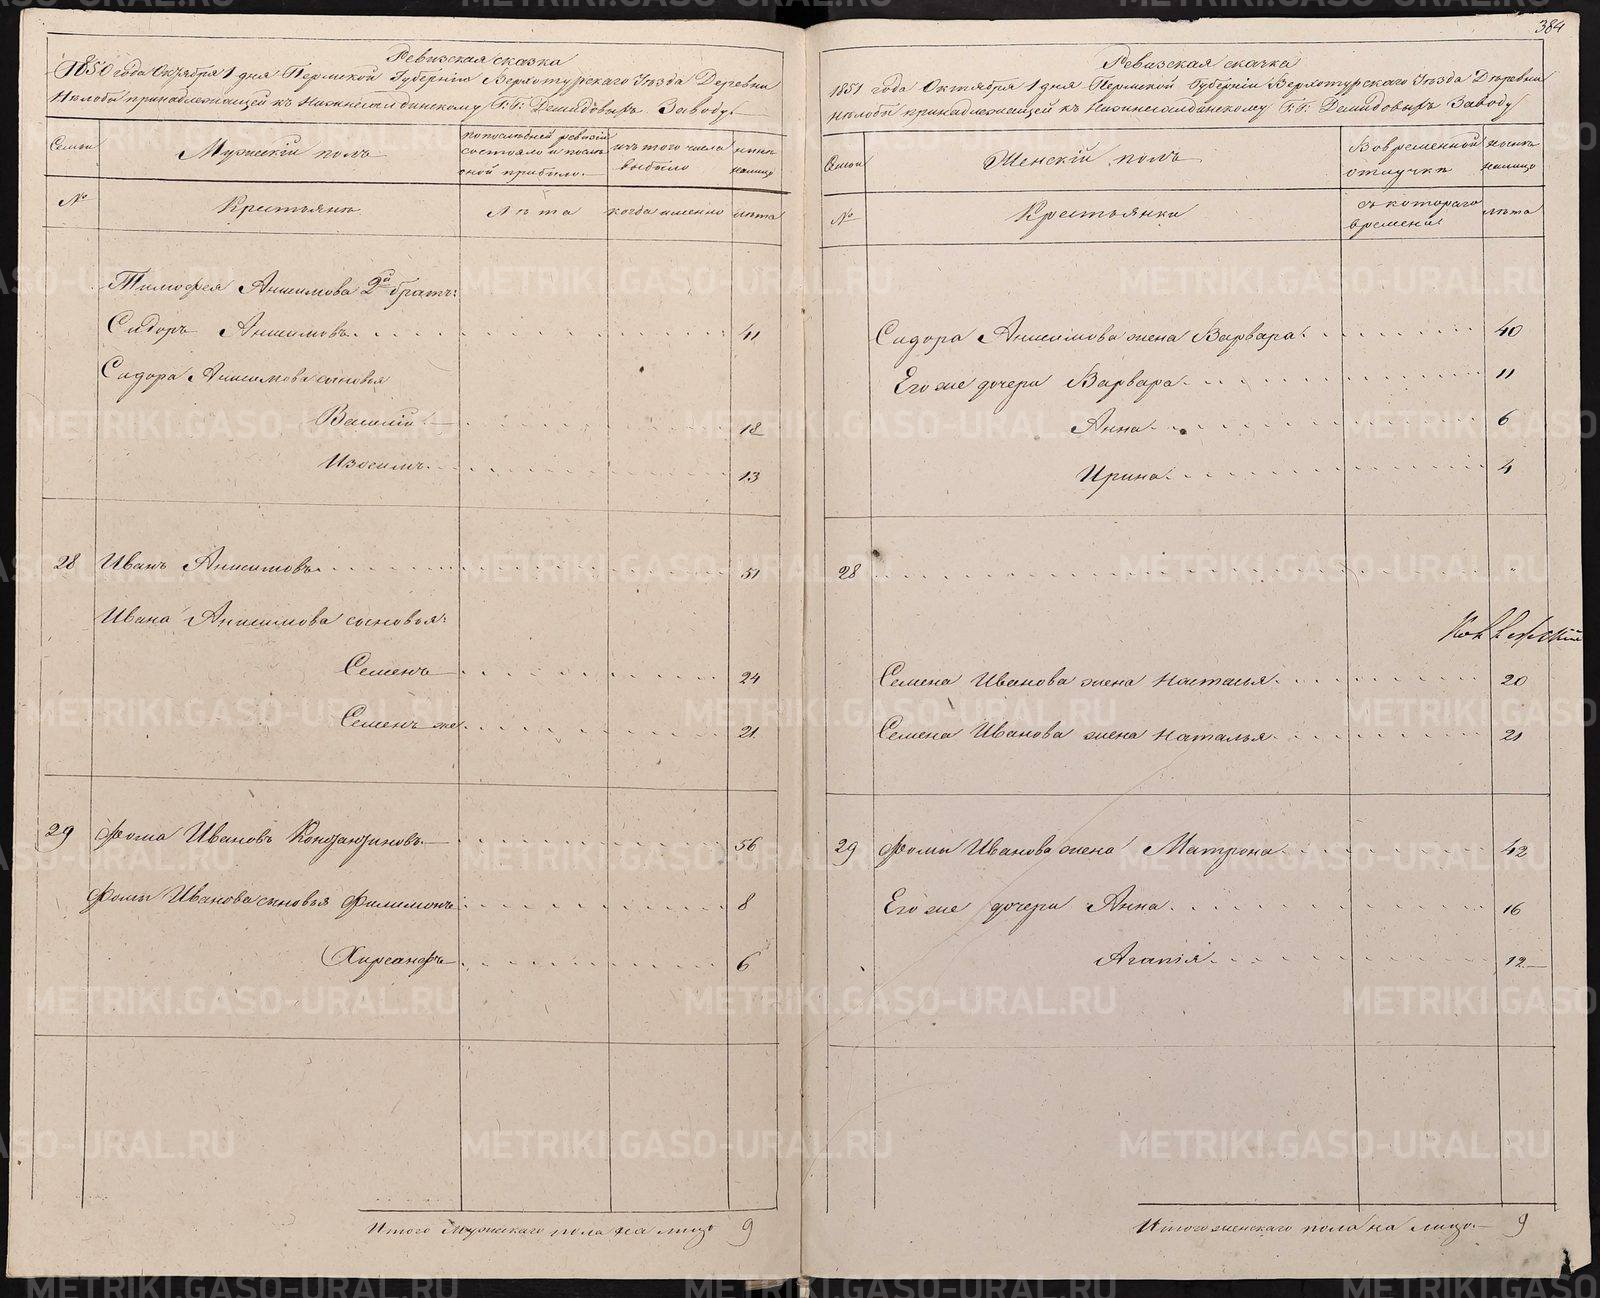 384
Ревизская сказка
1850 года Октября 1 дня Пермской Губернiи Верхотурскаго Уѣзда Деревни
Нелобы принадлежащей къ Нижнесалдинскому Г.Г: Демидовыхъ Заводу.
Семьи
Мужескiй полъ
по последней ревизiи состояло и после оной прибыло.
изъ того числа выбыло
нынѣ налицо
№
Крестьянѣ
Лѣта
когда именно
лѣта
Тимофея Анисимова 2й братъ:
Сидоръ Анисимовъ 41
Сидора Анисимова сыновья
Василiй 18
Изосимъ 13
28 Иванъ Анисимовъ 51
Ивана Анисимова сыновья:
Семенъ 24
Семенъ же 21
29 Фома Ивановъ Константиновъ 56
Фомы Иванова сыновья Филимонъ 8
Хирсанфъ 6
Итого Мужескаго пола на лицо 9
Ревизская сказка
1851 года Октября 1 дня Пермской Губернiи Верхотурскаго Уѣзда Деревни
Нелобы принадлежащей къ Нижнесалдинскому Г.Г: Демидовыхъ Заводу
Семьи
Женскiй полъ
Во временной отлучкѣ
нынѣ налицо
№
Крестьянки
съ котораго времени
лѣта
Сидора Анисимова жена Варвара 40
Его же дочери Варвара 11
Анна 6
Ирина 4
28
Семена Иванова жена Настасья 20
Семена Иванова жена Наталья 21
29 Фомы Иванова жена Матрона 42
Его же дочери Анна 16
Агапiя 12
Итого женскаго пола на лицо 9
METRIKI.GASO-URAL.RU